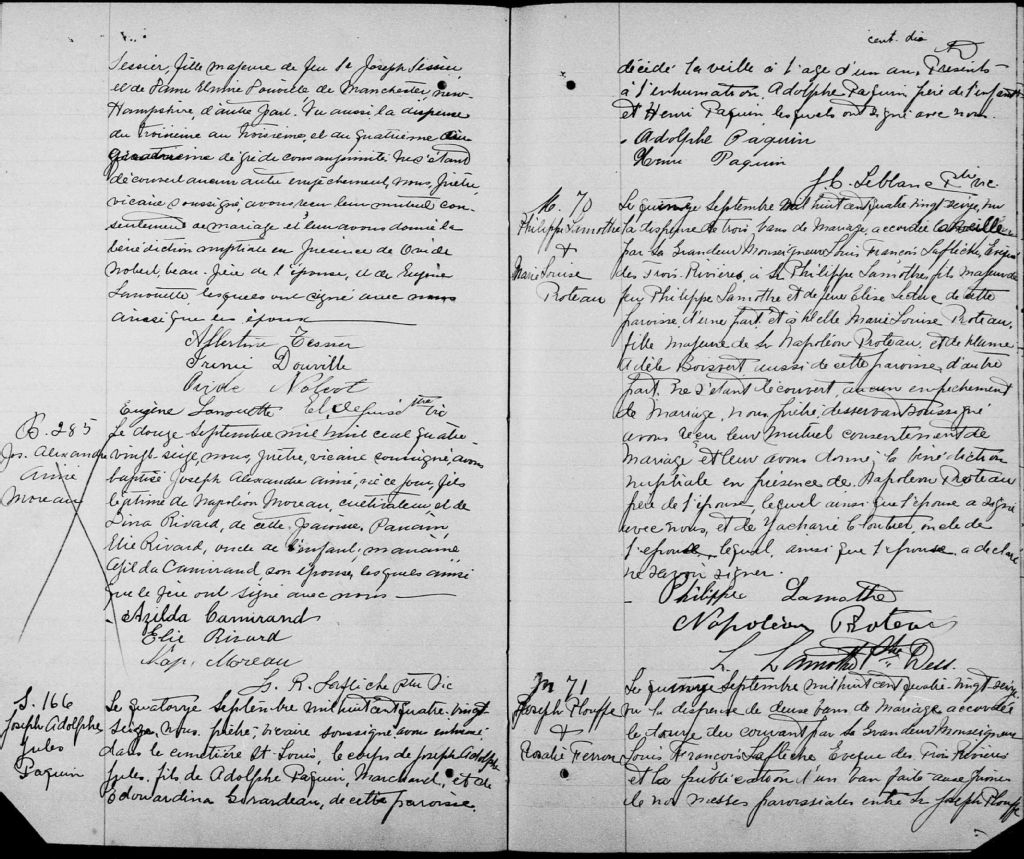 Tessier, fille majeure de feu Sr Joseph Tessier
et de Dame Irénée Douville de Manchester New-
Hampshire, d'autre part. Vu aussi la dispense
du troisième au troisième, et du quatrième au
quatrième degré de consanguinité. Ne s'étant
découvert aucun autre empêchement, nous, prêtre,
vicaire soussigné, avons reçu leur mutuel con-
sentement de mariage et leur avons donné la
bénédiction nuptiale en présence de Ovide
Nobert, beau-père de l'épouse, et de Eugène
Lanouette, lesquels ont signé avec nous
ainsi que les époux
Albertine Tessier
Irénée Douville
Ovide Nobert
Eugène Lanouette ptre vic
B. 285
Jos. Alexandre
Aimé
Moreau
Le douze septembre mil huit cent quatre-
vingt seize, nous, prêtre, vicaire soussigné, avons
baptisé Joseph Alexandre Aimé, né ce jour, fils
légitime de Napoléon Moreau, cultivateur, et de
Lina Rivard, de cette paroisse. Parrain,
Elie Rivard, oncle de l'enfant; marraine
Azilda Camirand, son épouse, lesquels ainsi
que le père ont signé avec nous
Azilda Camirand
Elie Rivard
Nap. Moreau
L. R. Lafleche ptre Vic
S. 166
Joseph Adolphe
Jules
Paquin
Le quatorze septembre mil huit cent quatre-vingt
seize, nous, prêtre, vicaire soussigné avons inhumé
dans le cimetière St Louis, le corps de Joseph Adolphe
Jules, fils de Adolphe Paquin, Marchand, et de
Edouardina Girardeau, de cette paroisse.
cent. dix
décédé la veille à l'age d'un an. Présents
à l'inhumation, Adolphe Paquin, père de l'enfant
et Henri Paquin, lesquels ont signé avec nous.
Adolphe Paquin
Henri Paquin
J. E. Leblanc Ptre vic.
M. 70
Philippe Lamothe
+
Marie Louise
Proteau
Le quinze Septembre mil huit cent quatre vingt seize, vu
la dispense de trois bans de mariage, accordée la veille
par Sa Grandeur Monseigneur Louis François Laflèche, Evêque
des Trois-Rivières, à Sr Philippe Lamothe, fils majeur de
feu Philippe Lamothe et de feue Elise Leduc de cette
paroisse, d'une part, et à Delle Marie Louise Proteau,
fille majeure de Sr Napoléon Proteau, et de Dame
Adèle Boisvert aussi de cette paroisse, d'autre
part. Ne s'étant découvert aucun empêchement
de mariage, nous, prêtre, desservant soussigné
avons reçu leur mutuel consentement de
mariage et leur avons donné la bénédiction
nuptiale en présence de Napoléon Proteau
père de l'épouse, lequel ainsi que l'époux a signé
avec nous, et de Zacharie Cloutier, oncle de
l'épouse, lequel, ainsi que l'épouse, a déclaré
ne savoir signer.
Philippe Lamothe
Napoléon Proteau
L. Lamothe Ptre Dess.
M 71
Joseph Plouffe
+
Rosalie Ferron
Le quinze Septembre mil huit cent quatre-vingt seize
vu la dispense de deux bans de mariage accordée
le douze du courant par Sa Grandeur Monseigneur
Louis François Laflèche Evêque des Trois Rivières
et la publication d'un ban faite aux prônes
de nos messes paroissiales entre Sr Joseph Plouffe